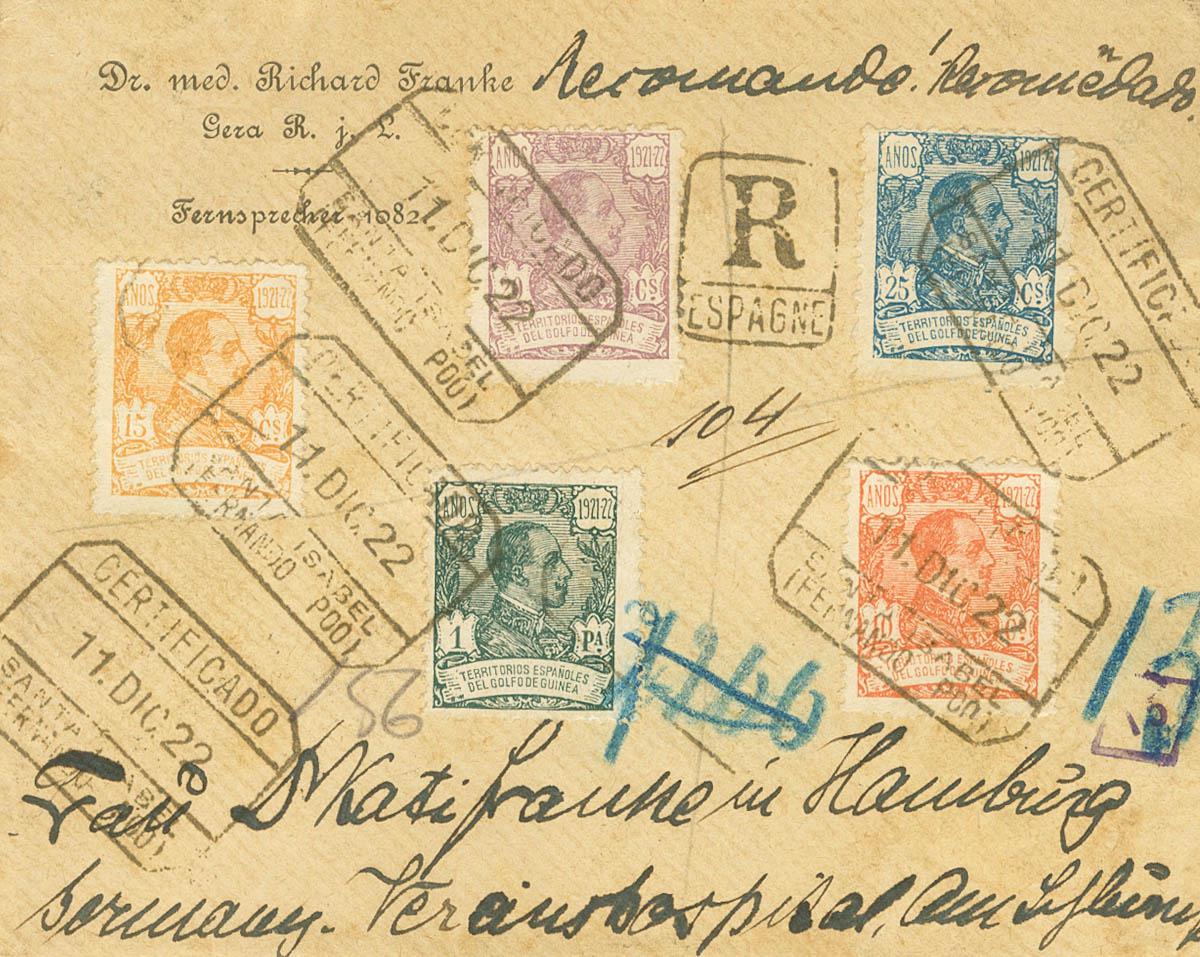 Dr. med. Richard Franke
Gera R. j. L.
Fernsprecher 1082
Recomando! Recomendado.
AÑOS 1921-22
CS
TERRITORIOS ESPAÑOLES
DEL GOLFO DE GUINEA
R
ESPAGNE
AÑOS 1921-22
25 CS
TERRITORIOS ESPAÑOLES
DEL GOLFO DE GUINEA
AÑOS 1921-22
15 CS
TERRITORIOS
DEL
104
AÑOS 1921-22
1 PA
TERRITORIOS ESPAÑOLES
DEL GOLFO DE GUINEA
AÑOS 1921-22
10
DEL GOLFO DE GUINEA
CERTIFICADO
11.DIC.22
SANTA ISABEL
(FERNANDO POO)
CERTIFICADO
11.DIC.22
ISABEL
(FERNANDO POO)
CERTIFIC
11 DIC.22
11.DIC.22
SANTA ISABEL
(FERNANDO POO)
CERTIFICADO
11.DIC.22
SANTA ISABEL
156
Kati Franke in Hamburg
Germany. Vereinshospital, Am Schlump